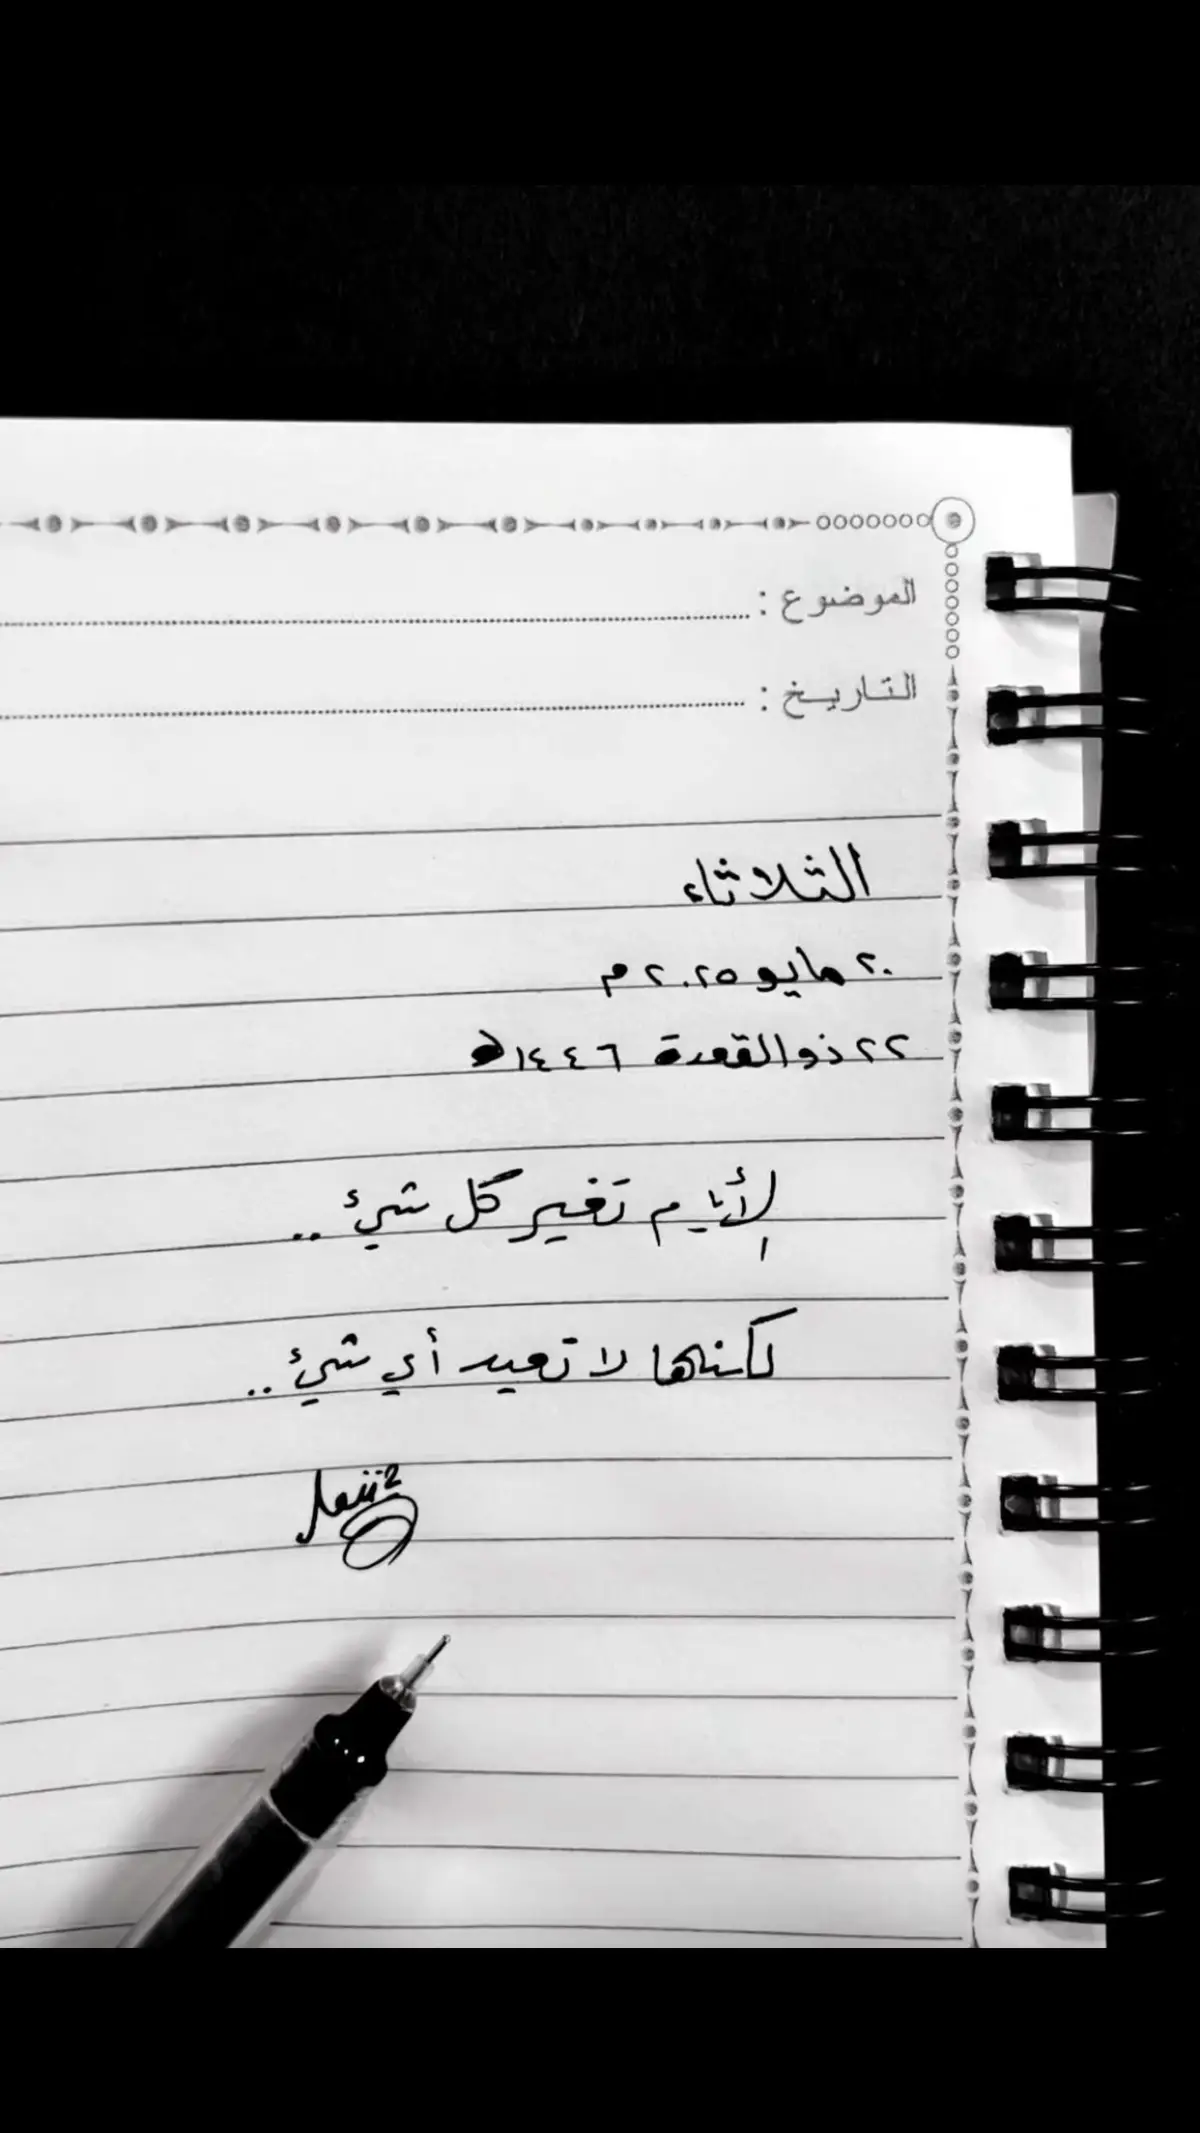 الموضوع :
التاريخ :
الثلاثاء
٢٠ مايو ٢٠٢٥ م
٢٢ ذو القعدة ١٤٤٦هـ
الأيام تغير كل شيئ ..
لكنها لا تعيد أي شيئ ..